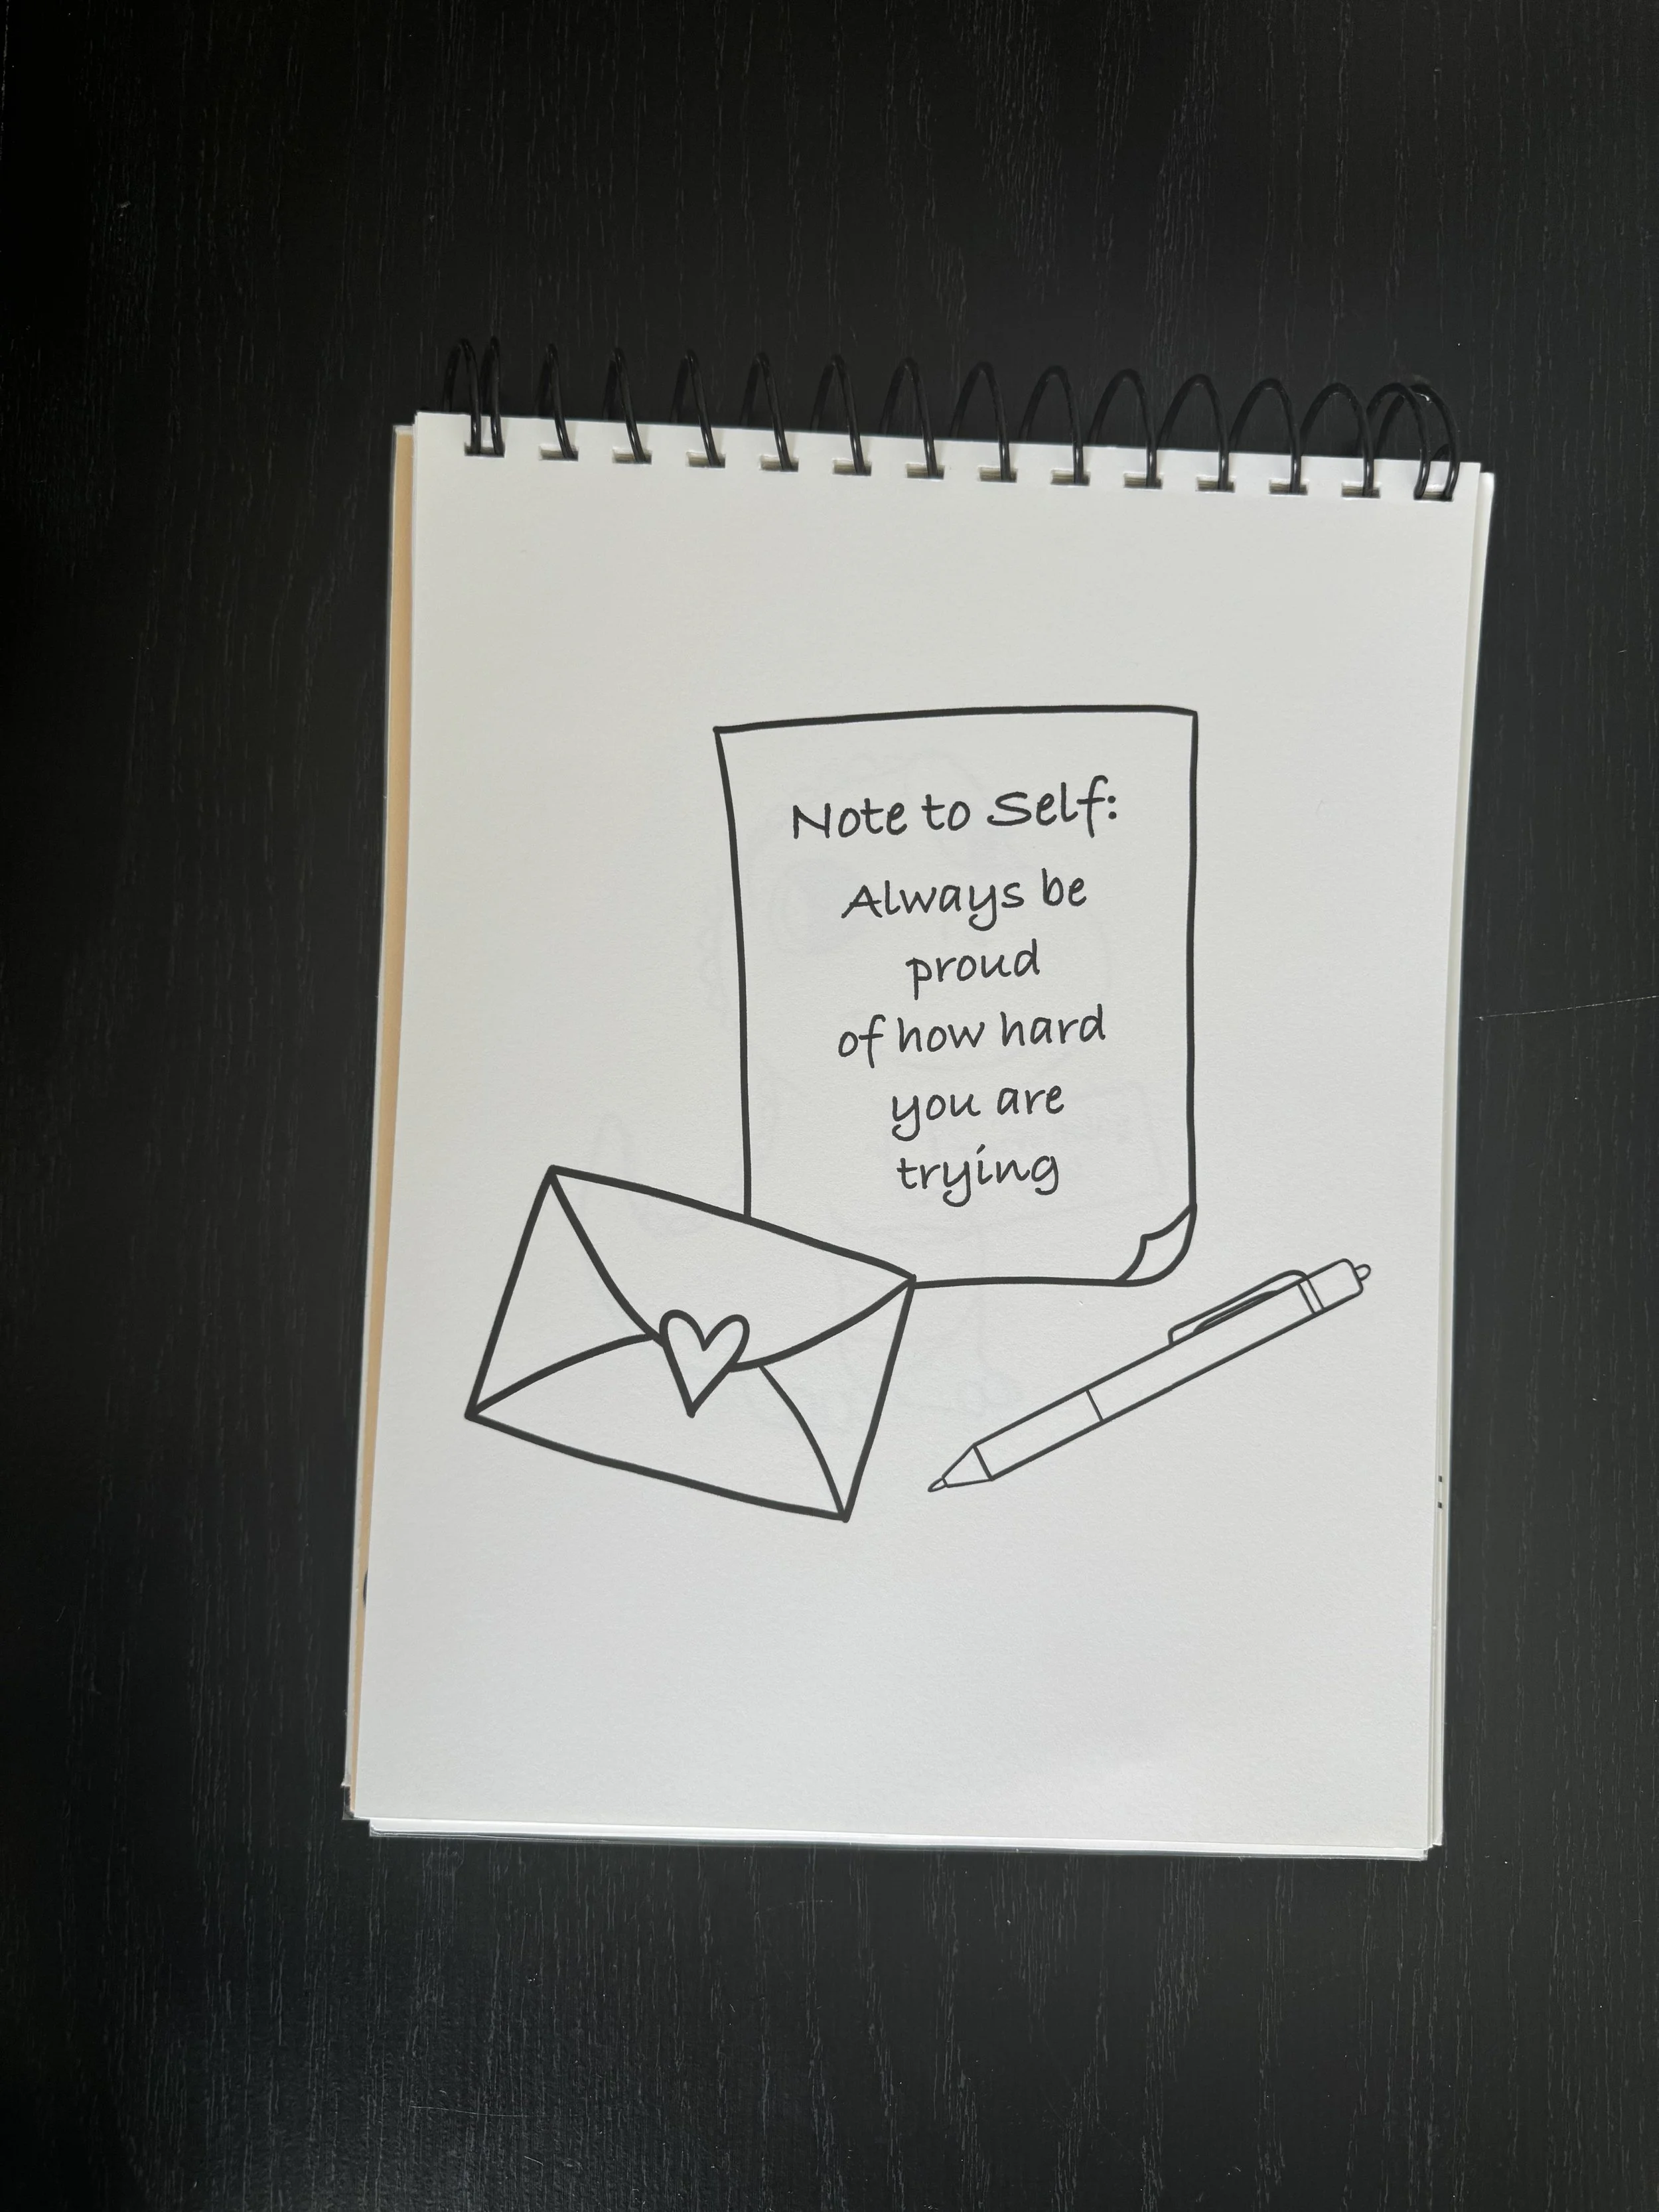 Note to Self:
Always be
proud
of how hard
you are
trying